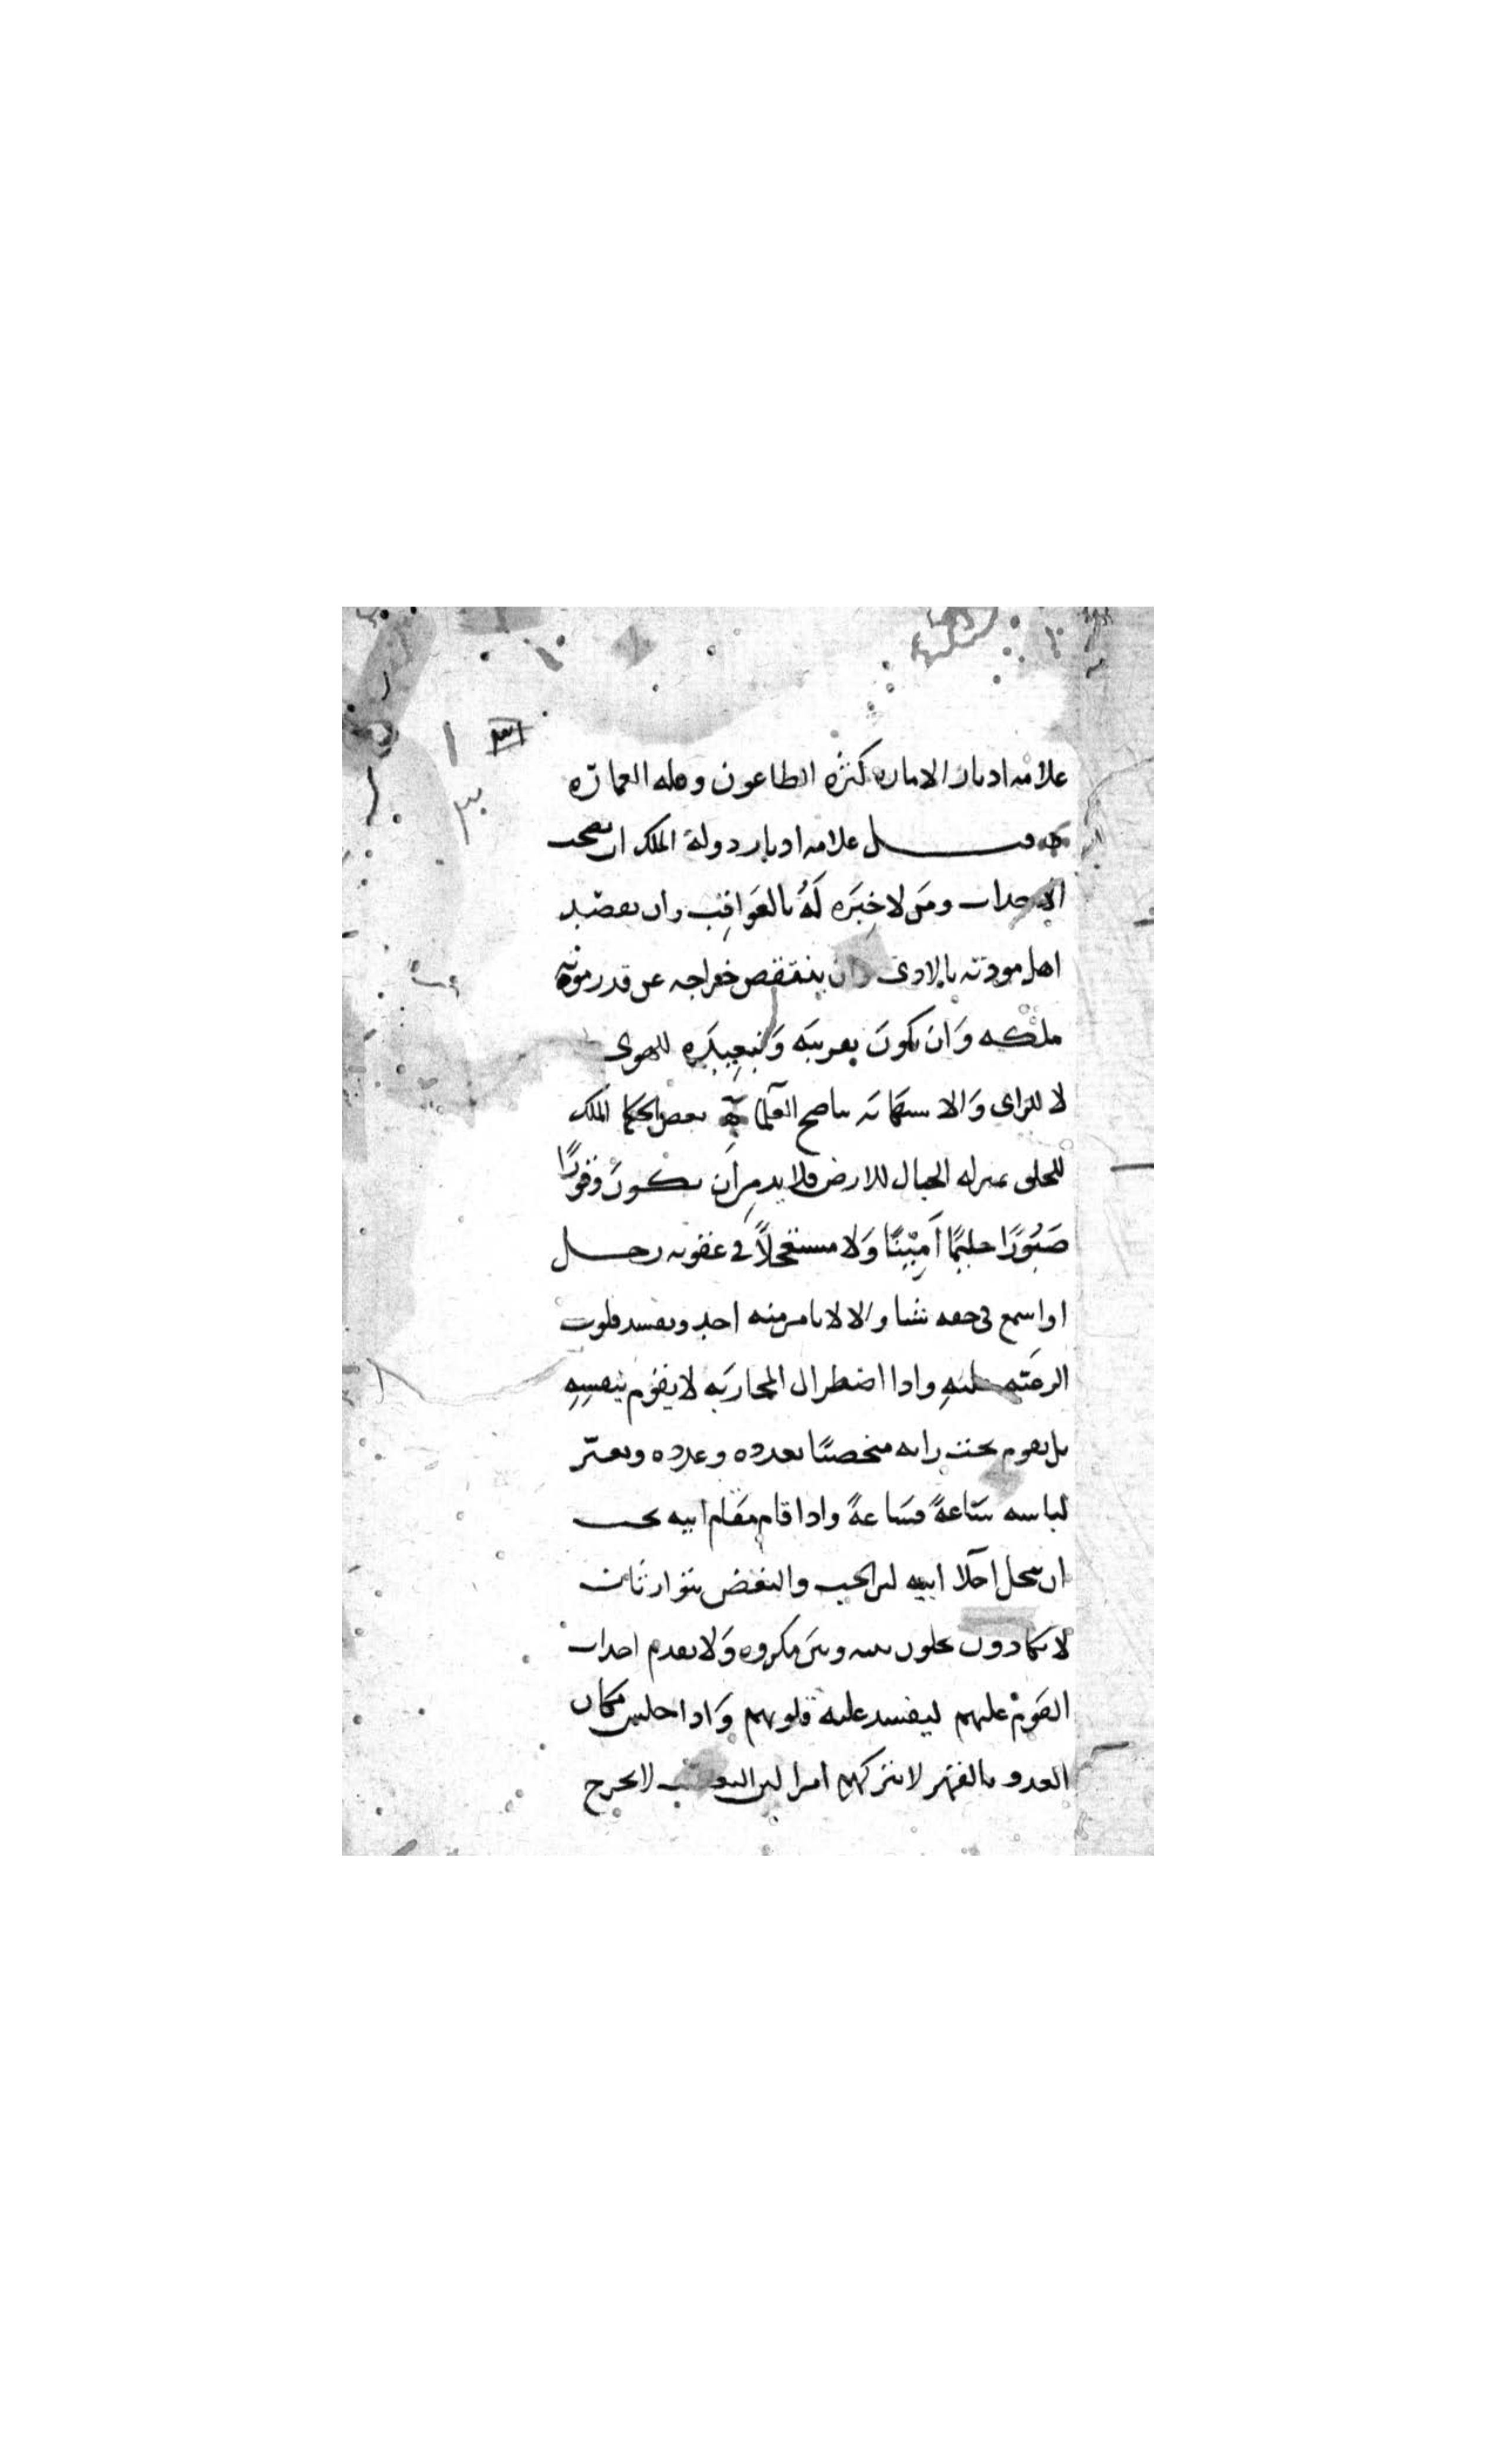 علامه ادبار الاماره كثره الطاعون وقله العمارة
وقيل علامه ادبار دولة الملك ان يصحب
الاحداث ومن لا خبره له بالعواقب وان يقصد
اهل مودته بالاذى وان ينتقص خراجه عن قدر مونه
ملكه وان يكون تقريبه وتبعيده للهوى
لا للراى والاستهانه بنصائح العلما بعض الحكما الملك
للخلق بمنزله الجبال للارض فلا بد من ان يكون وقورًا
صبورًا حليمًا أمينًا ولا مستعجلاً في عقوبه رجل
اذا سمع فى حقه شيا والا لا يامن منه احد ويفسد قلوب
الرعيه عليه واذا اضطر الى المحاربه لا يقوم بنفسه
بل يقوم تحت رايه متحصنًا بعدده وعدده ويغير
لباسه ساعةً فساعةً واذا قام مقام ابيه يجب
ان يبجل اخلا ابيه لان الحب والبغض يتوارثان
لا يكادون يخلون بينه وبين مكروه ولا يقدم احداث
القوم عليهم ليفسد عليه قلوبهم واذا جلس مكان
العدو بالقهر لا يتركهم امرا لان التعب لا يخرج